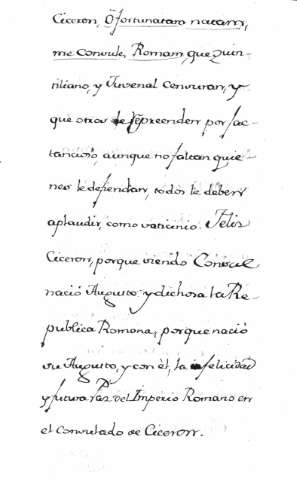 Ciceron, O fortunatam natam,
me Consule, Romam, que Quin-
tiliano, y Juvenal censuran, y
que otros reprenden por jac-
tancioso, aunque no faltan quie-
nes le defiendan, todos le deben
aplaudir, como vaticinio. Felis
Ciceron, porque siendo Consul
nació Augusto y dichosa la Re-
publica Romana, porque nació
su Augusto, y con él, la felicidad
y futura Pas del Imperio Romano en
el Consulado de Ciceron.